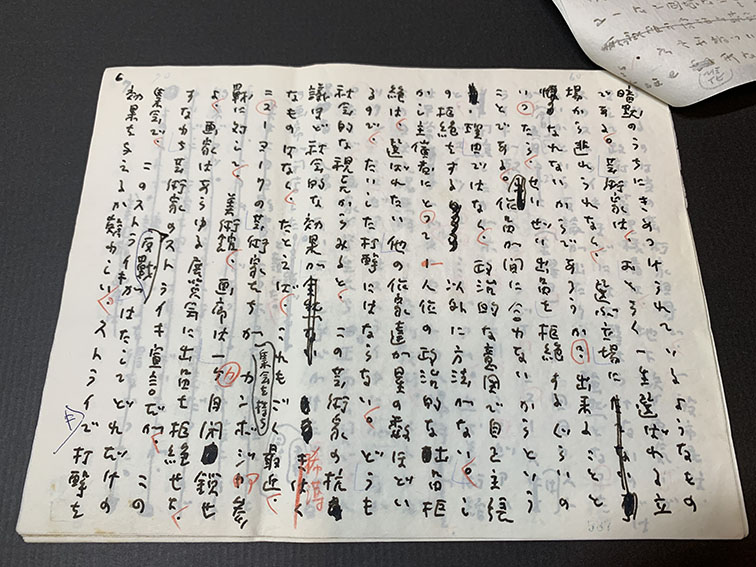 暗黙のうちにきめつけられているようなもの
である。芸術家は、おそらく一生選ばれる立
場から逃れられなく、選ぶ立場に
なれないからであろうか、出来ることと
いったら、せいぜい出品を拒絶するぐらいの
ことである。作品が間に合わないからという
理由ではなく、政治的な意図で自己主張
の拒絶をする以外に方法がない。しか
から主催者にとって一人位の政治的な出品拒
絶は、選ばれたい他の作家達が星の数ほどい
るので、たいした打撃にはならない。どうも
社会的な視点からみると、この芸術家の抗
議ほど社会的な効果が
なものはなく、たとえば、これもごく最近、
ニューヨークの芸術家たちが集会を持ちカンボジア参
戦に対して、美術館、画廊は一ヶ月閉鎖せ
よ、画家はあらゆる展覧会に出品を拒絶せよ、
すなわち芸術家のストライキ宣言だが、この
集会で、このストライキがはたしてどれだけの反戦
効果を与えるか疑わしい。ストライキで打撃を
希薄
6